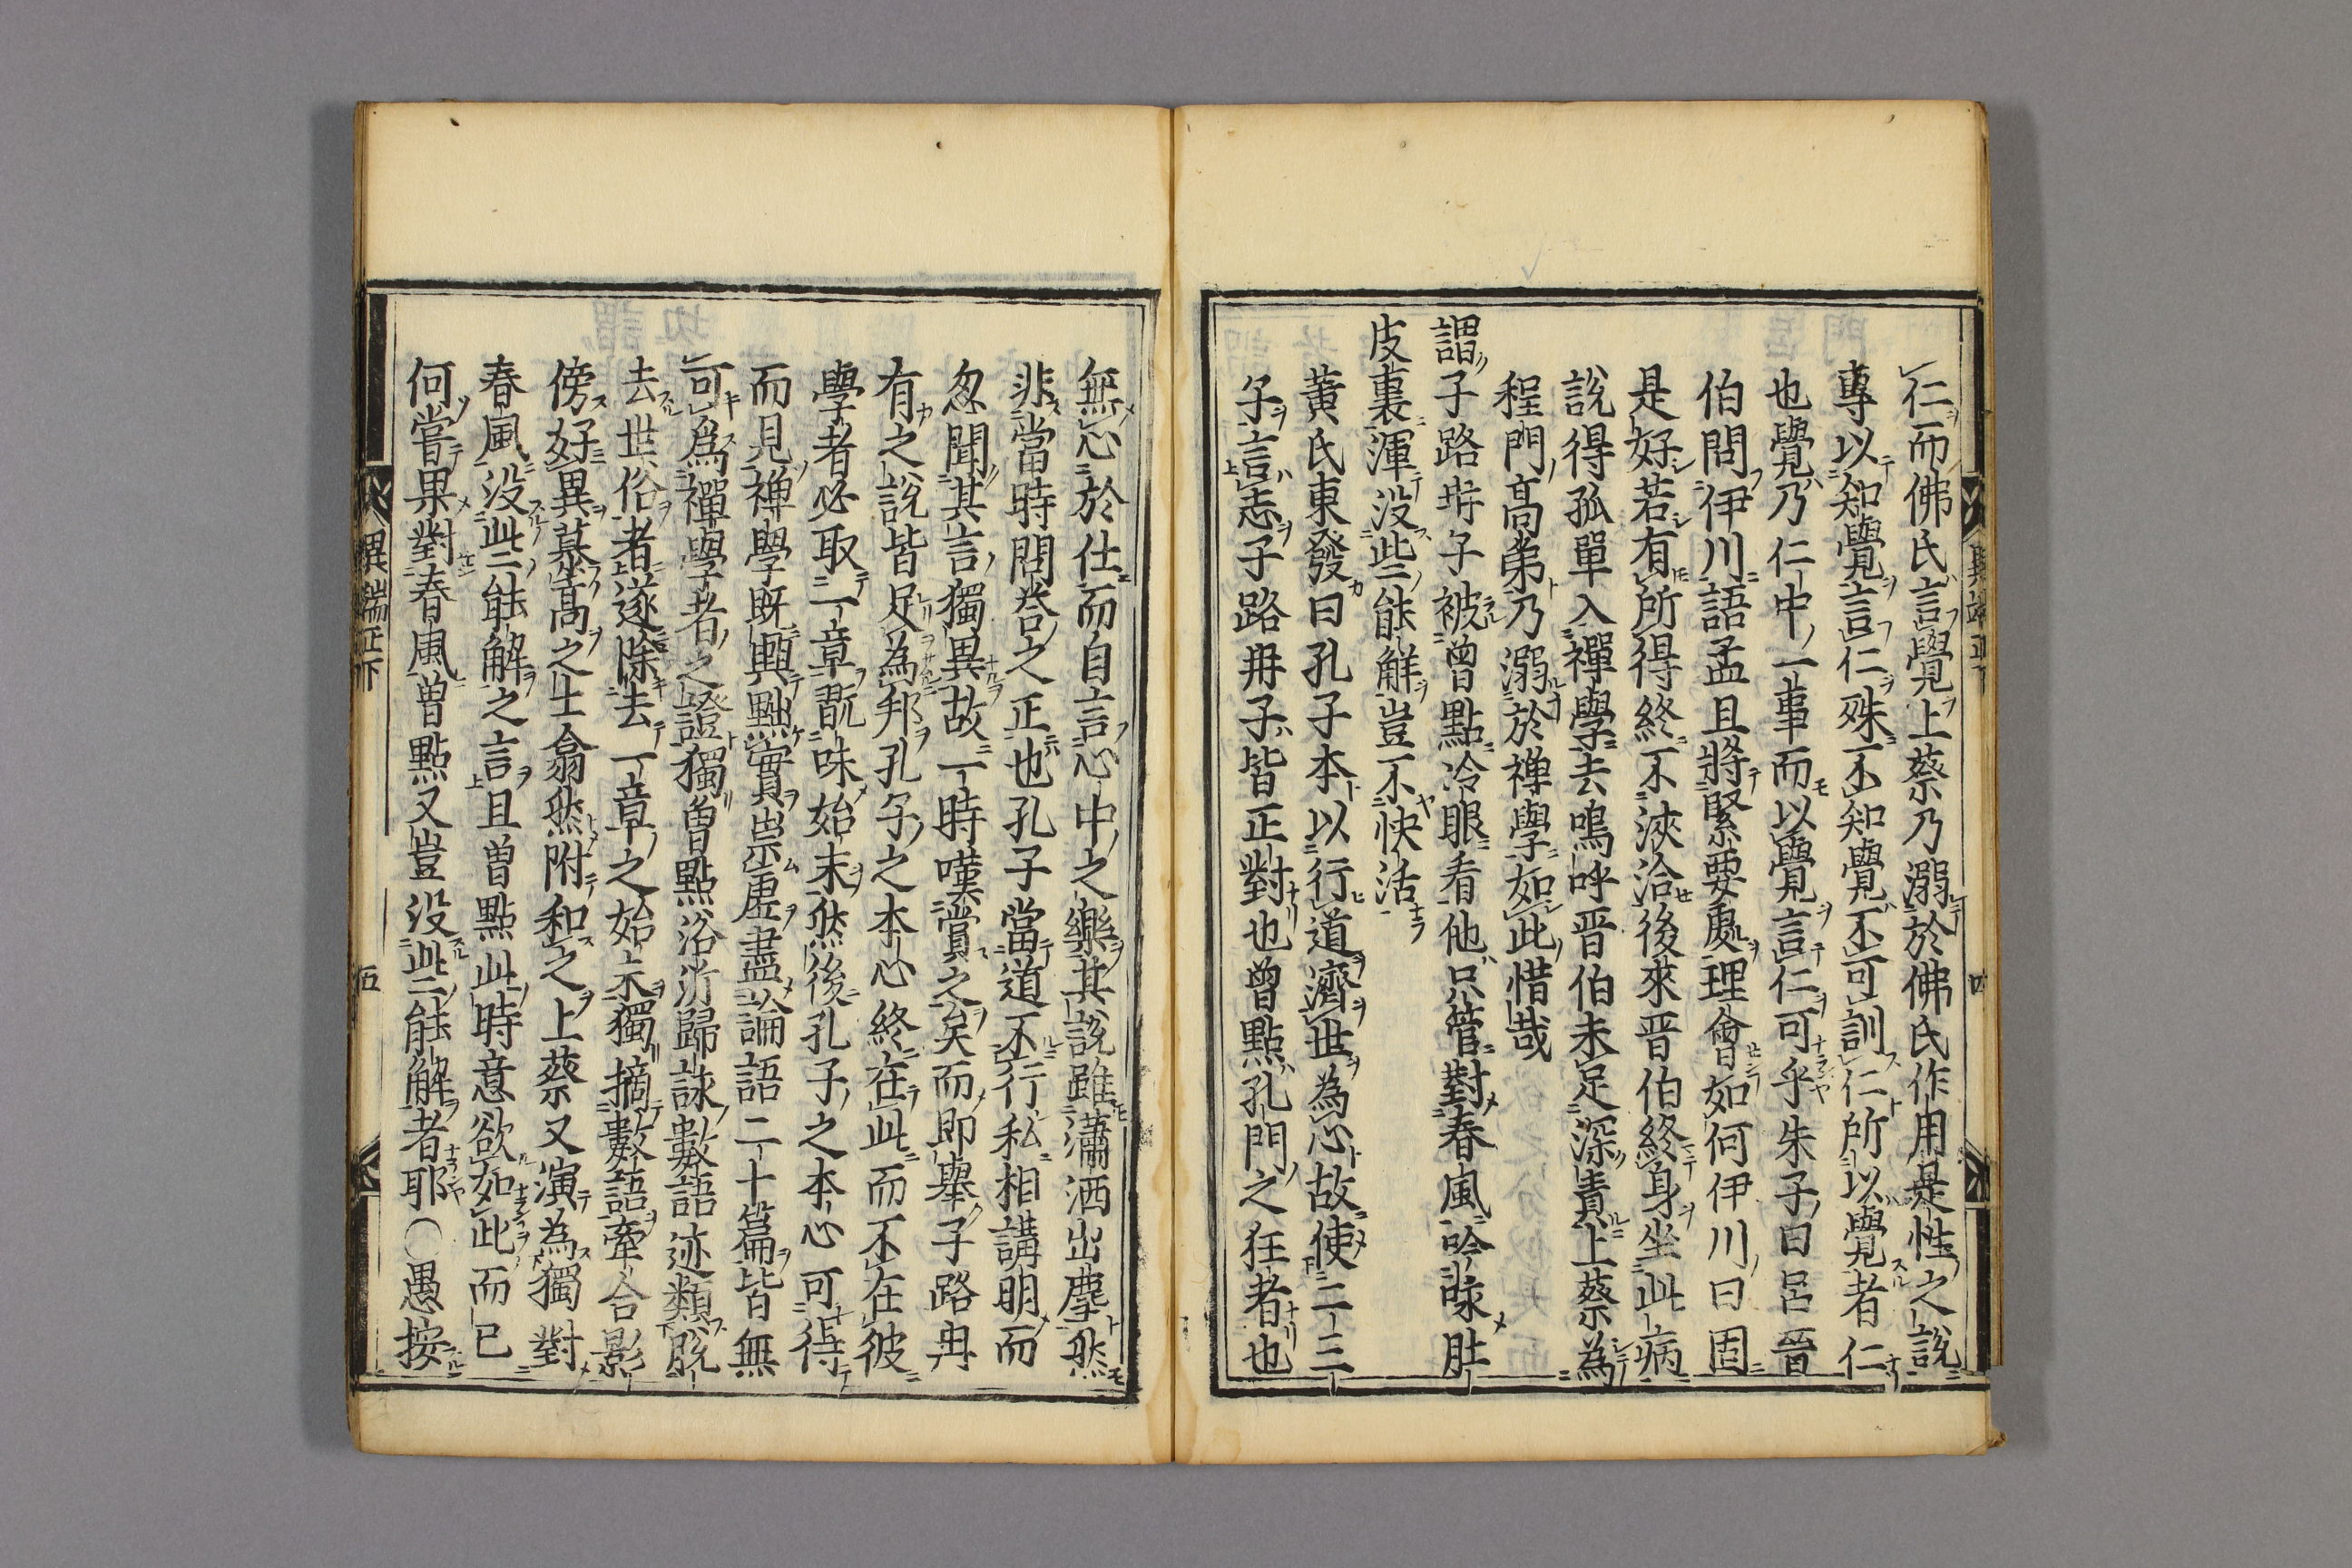 仁而佛氏言覺上蔡乃溺於佛氏作用是性之說
專以知覺言仁殊不知覺不可訓仁所以覺者仁
也覺乃仁中一事而以覺言仁可乎朱子曰呂晉
伯問伊川語孟且將緊要處理會如何伊川曰固
是好若有所得終不浹洽後來晉伯終身坐此病
說得孤單入禪學去嗚呼晉伯未足深責上蔡為
程門高弟乃溺於禅學如此惜哉
謂子路冉子被曽點冷眼看他只管對春風吟詠肚
皮裏渾没些能解豈不快活
黄氏東發曰孔子本以行道濟世為心故使二三
子言志子路冉子皆正對也曽點孔門之狂者也
無心於仕而自言心中之樂其說雖瀟洒出塵然
非當時問答之正也孔子當道不行私相講明而
忽聞其言獨異故一時嘆賞之矣而即舉子路冉
有之說皆足為邦孔子之本心終在此而不在彼
學者必取二章翫味始末然後孔子之本心可得
而見禅學既興黜實崇虛盡論語二十篇皆無
可為禪學者之證獨曽點浴沂歸詠數語迹類脫
去世俗者遂除去一章之始末獨摘數語牽合影
傍好異慕高之士翕然附和之上蔡又演為獨對
春風没些能解之言且曽點此時意欲如此而已
何嘗果對春風曽點又豈没些能解者耶○愚按
異端正下
伍